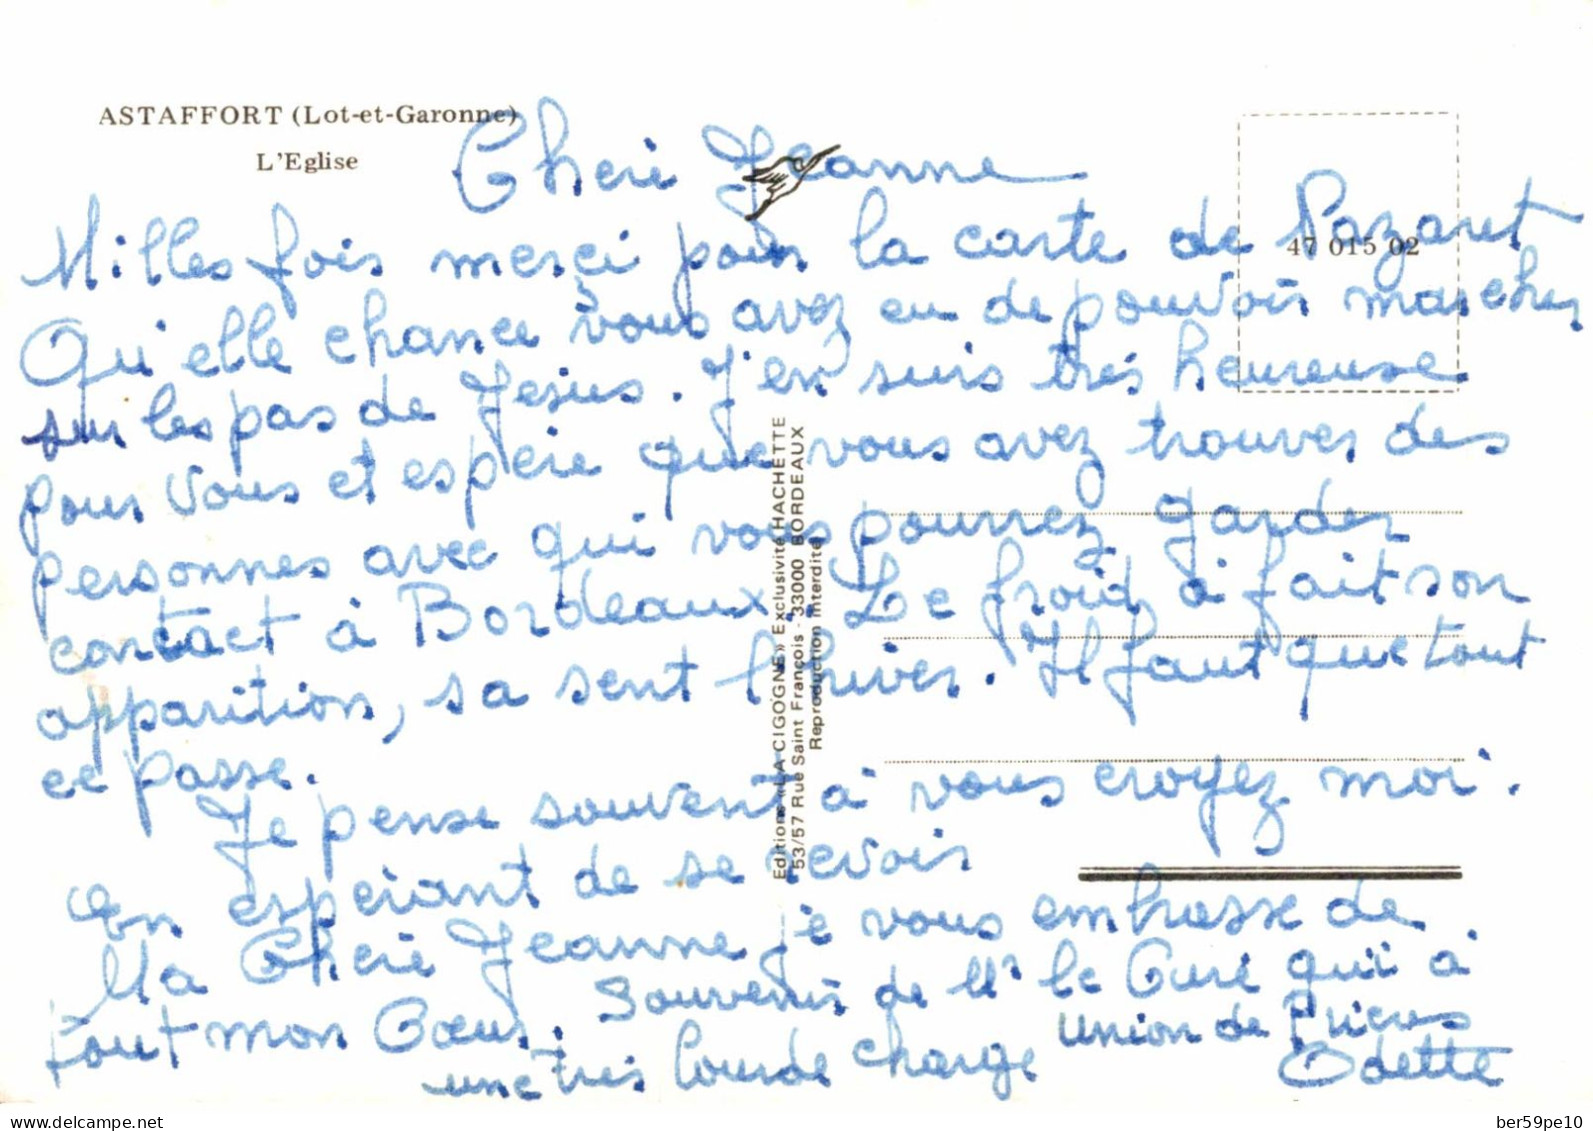 ASTAFFORT (Lot-et-Garonne)
L'Eglise
47 015 02
Cheri Jeanne
Milles fois merci pour la carte de Nazaret
Qu'elle chance vous avez eu de pouvoir marcher
sur les pas de Jesus. J'en suis très heureuse
pour vous et espère que vous avez trouver des
personnes avec qui vous pourrez garder
contact à Bordeaux. Le froid a fait son
apparition, sa sent l'hiver. Il faut que tout
ce passe.
Je pense souvent à vous croyez moi.
En esperant de se revoir
Ma Cheri Jeanne je vous embrasse de
tout mon Cœur. Souvenir de Mr le Curé qui à
une très lourde charge union de Prieres
Odette
Editions «LA CIGOGNE» Exclusivité HACHETTE
53/57 Rue Saint François - 33000 BORDEAUX
Reproduction interdite
delcampe.net
ber59pe10